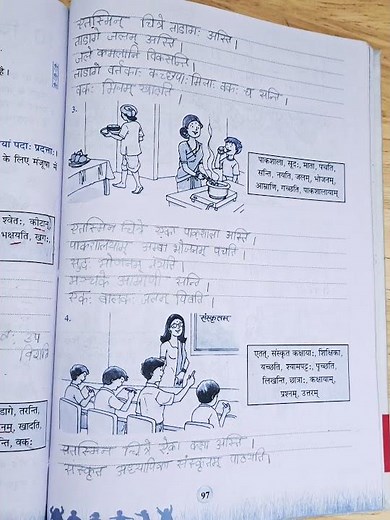 एतस्मिन् चित्रे तडागः अस्ति।
तडागे जलम् अस्ति।
जले कमलानि विकसन्ति।
तडागे वर्त्तकाः कच्छपाः मीनाः बकः च सन्ति।
बकः मीनम् खादति।
3.
पाकशाला, सूदः, माता, पचति,
सन्ति, नयति, जलम्, भोजनम्,
आम्राणि, गच्छति, पाकशालायाम्
एतस्मिन् चित्रे एका पाकशाला अस्ति।
पाकशालायाम् अम्बा भोजनम् पचति।
सूदः भोजनम् नयति।
मञ्चके आम्राणि सन्ति।
एकः बालकः जलम् पिबति।
4.
संस्कृतम्
एतत्, संस्कृत कक्षायाः, शिक्षिका,
यच्छति, श्यामपट्टः, पृच्छति,
लिखन्ति, छात्राः, कक्षायाम्,
प्रश्नम्, उत्तरम्
एतस्मिन् चित्रे ऐका कक्षा अस्ति।
संस्कृत अध्यापिका संस्कृतम् पाठयति।
97
है।
यां पदाः प्रदत्ताः।
के लिए मंजूषा में
श्वेतः, कोटान्,
भक्षयति, खगः,
डागे, तरन्ति,
नम्, खादति,
न्ति, वकः